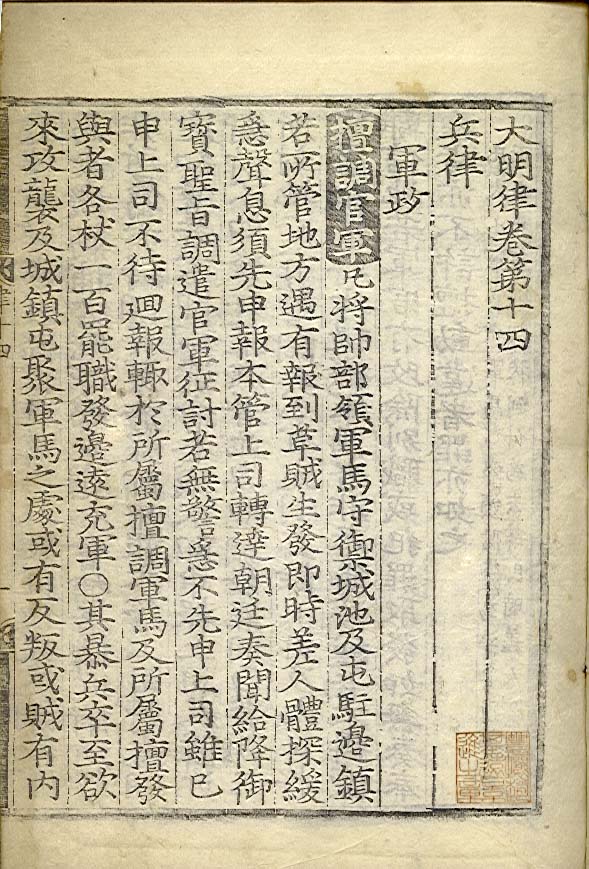 大明律卷第十四
兵律
軍政
擅調官軍凡將帥部領軍馬守禦城池及屯駐邊鎮
若所管地方遇有報到草賊生發即時差人體探緩
急聲息須先申報本管上司轉達朝廷奏聞給降御
寶聖旨調遣官軍征討若無警急不先申上司雖已
申上司不待廻報輒於所屬擅調軍馬及所屬擅發
與者各杖一百罷職發邊遠充軍○其暴兵卒至欲
來攻襲及城鎮屯聚軍馬之處或有反叛或賊有內